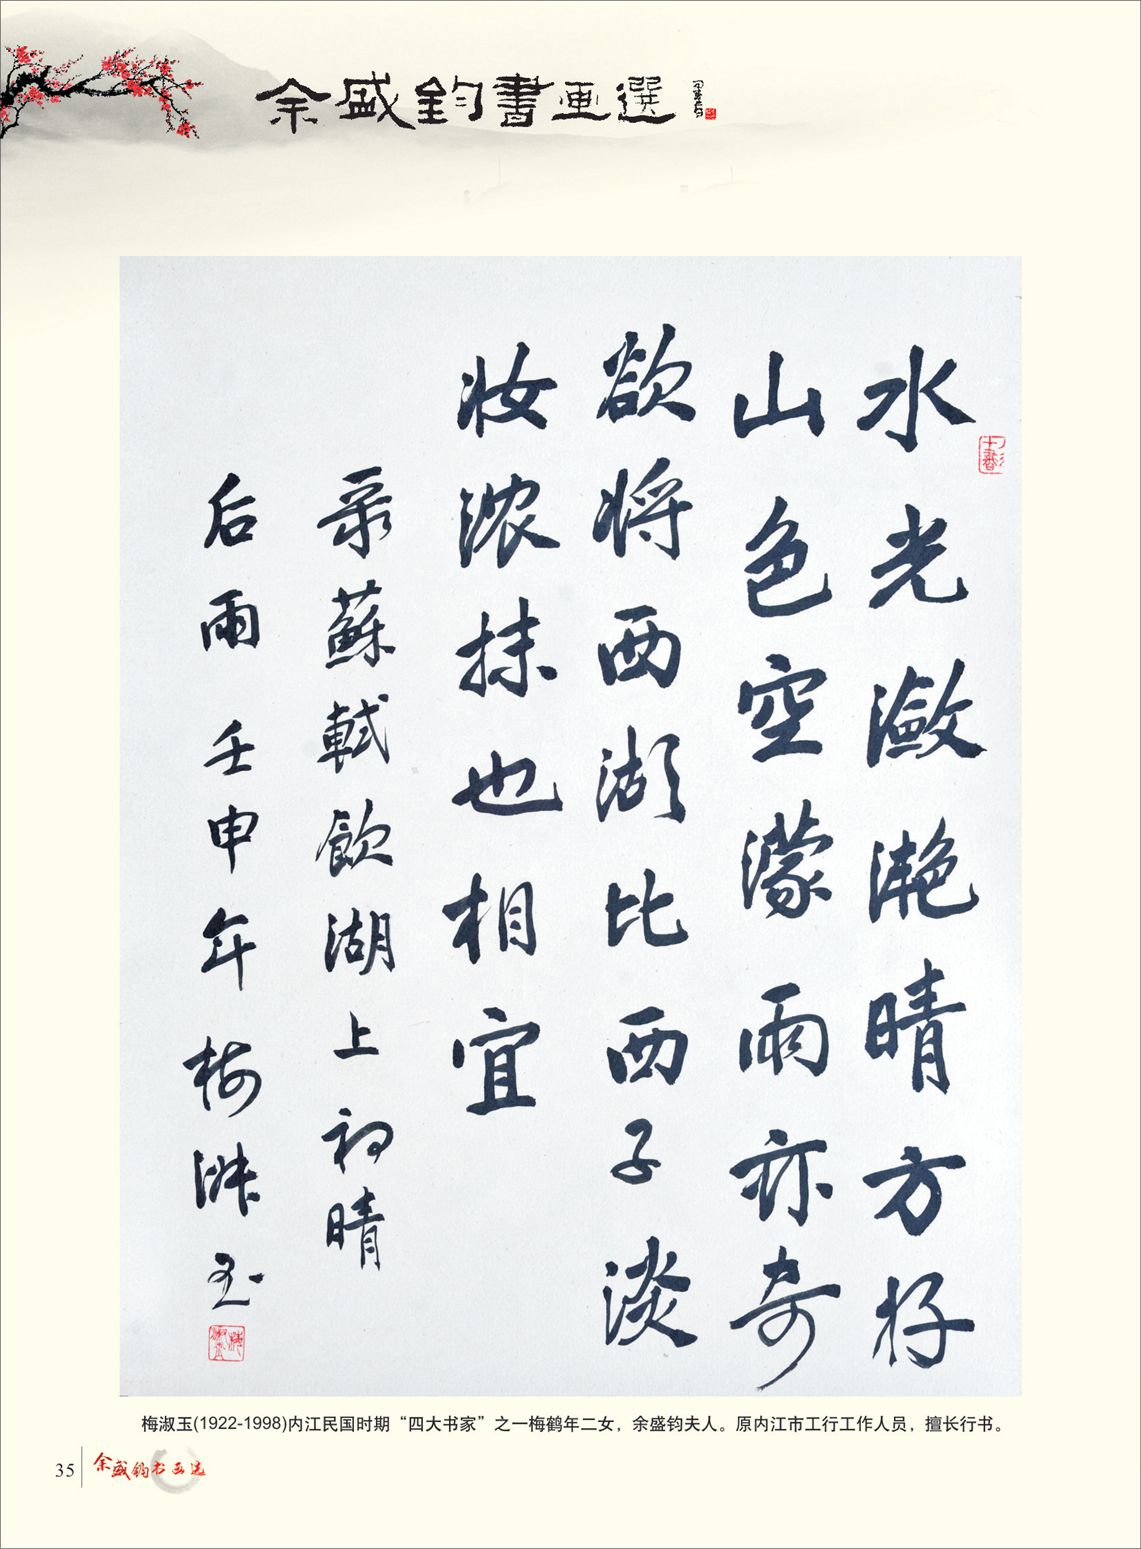 余盛鈞書画選
水光潋滟晴方好
山色空濛雨亦奇
欲将西湖比西子淡
妆浓抹也相宜
录蘇軾飲湖上初晴
后雨 壬申年 梅淑玉
梅淑玉(1922-1998)内江民国时期“四大书家”之一梅鹤年二女，余盛钧夫人。原内江市工行工作人员，擅长行书。
35
余盛钧书画选